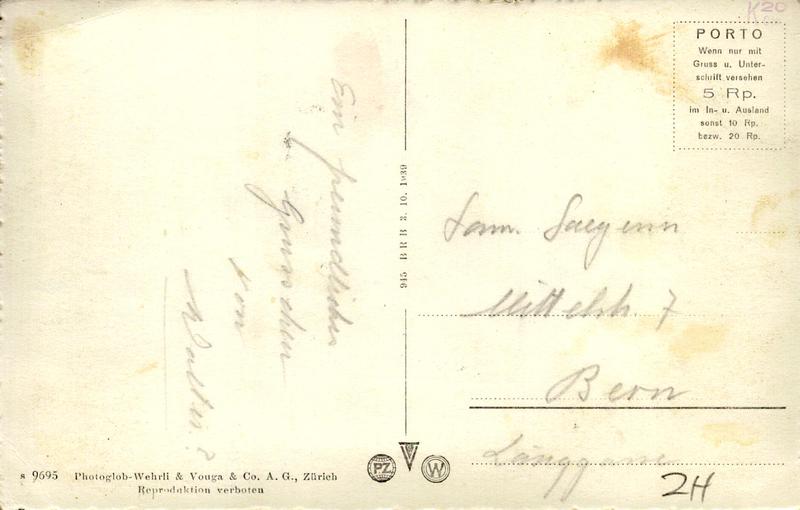 K 20
PORTO
Wenn nur mit
Gruss u. Unter-
schrift versehen
5 Rp.
im In- u. Ausland
sonst 10 Rp.
bezw. 20 Rp.
Ein freundliches
Grüsschen
von
Walter ?
945 BRB 3. 10. 1939
Fam.
Mittelstr. 7
Bern
Länggasse
2H
s 9695 Photoglob-Wehrli & Vouga & Co. A. G., Zürich
Reproduktion verboten
PZ
W